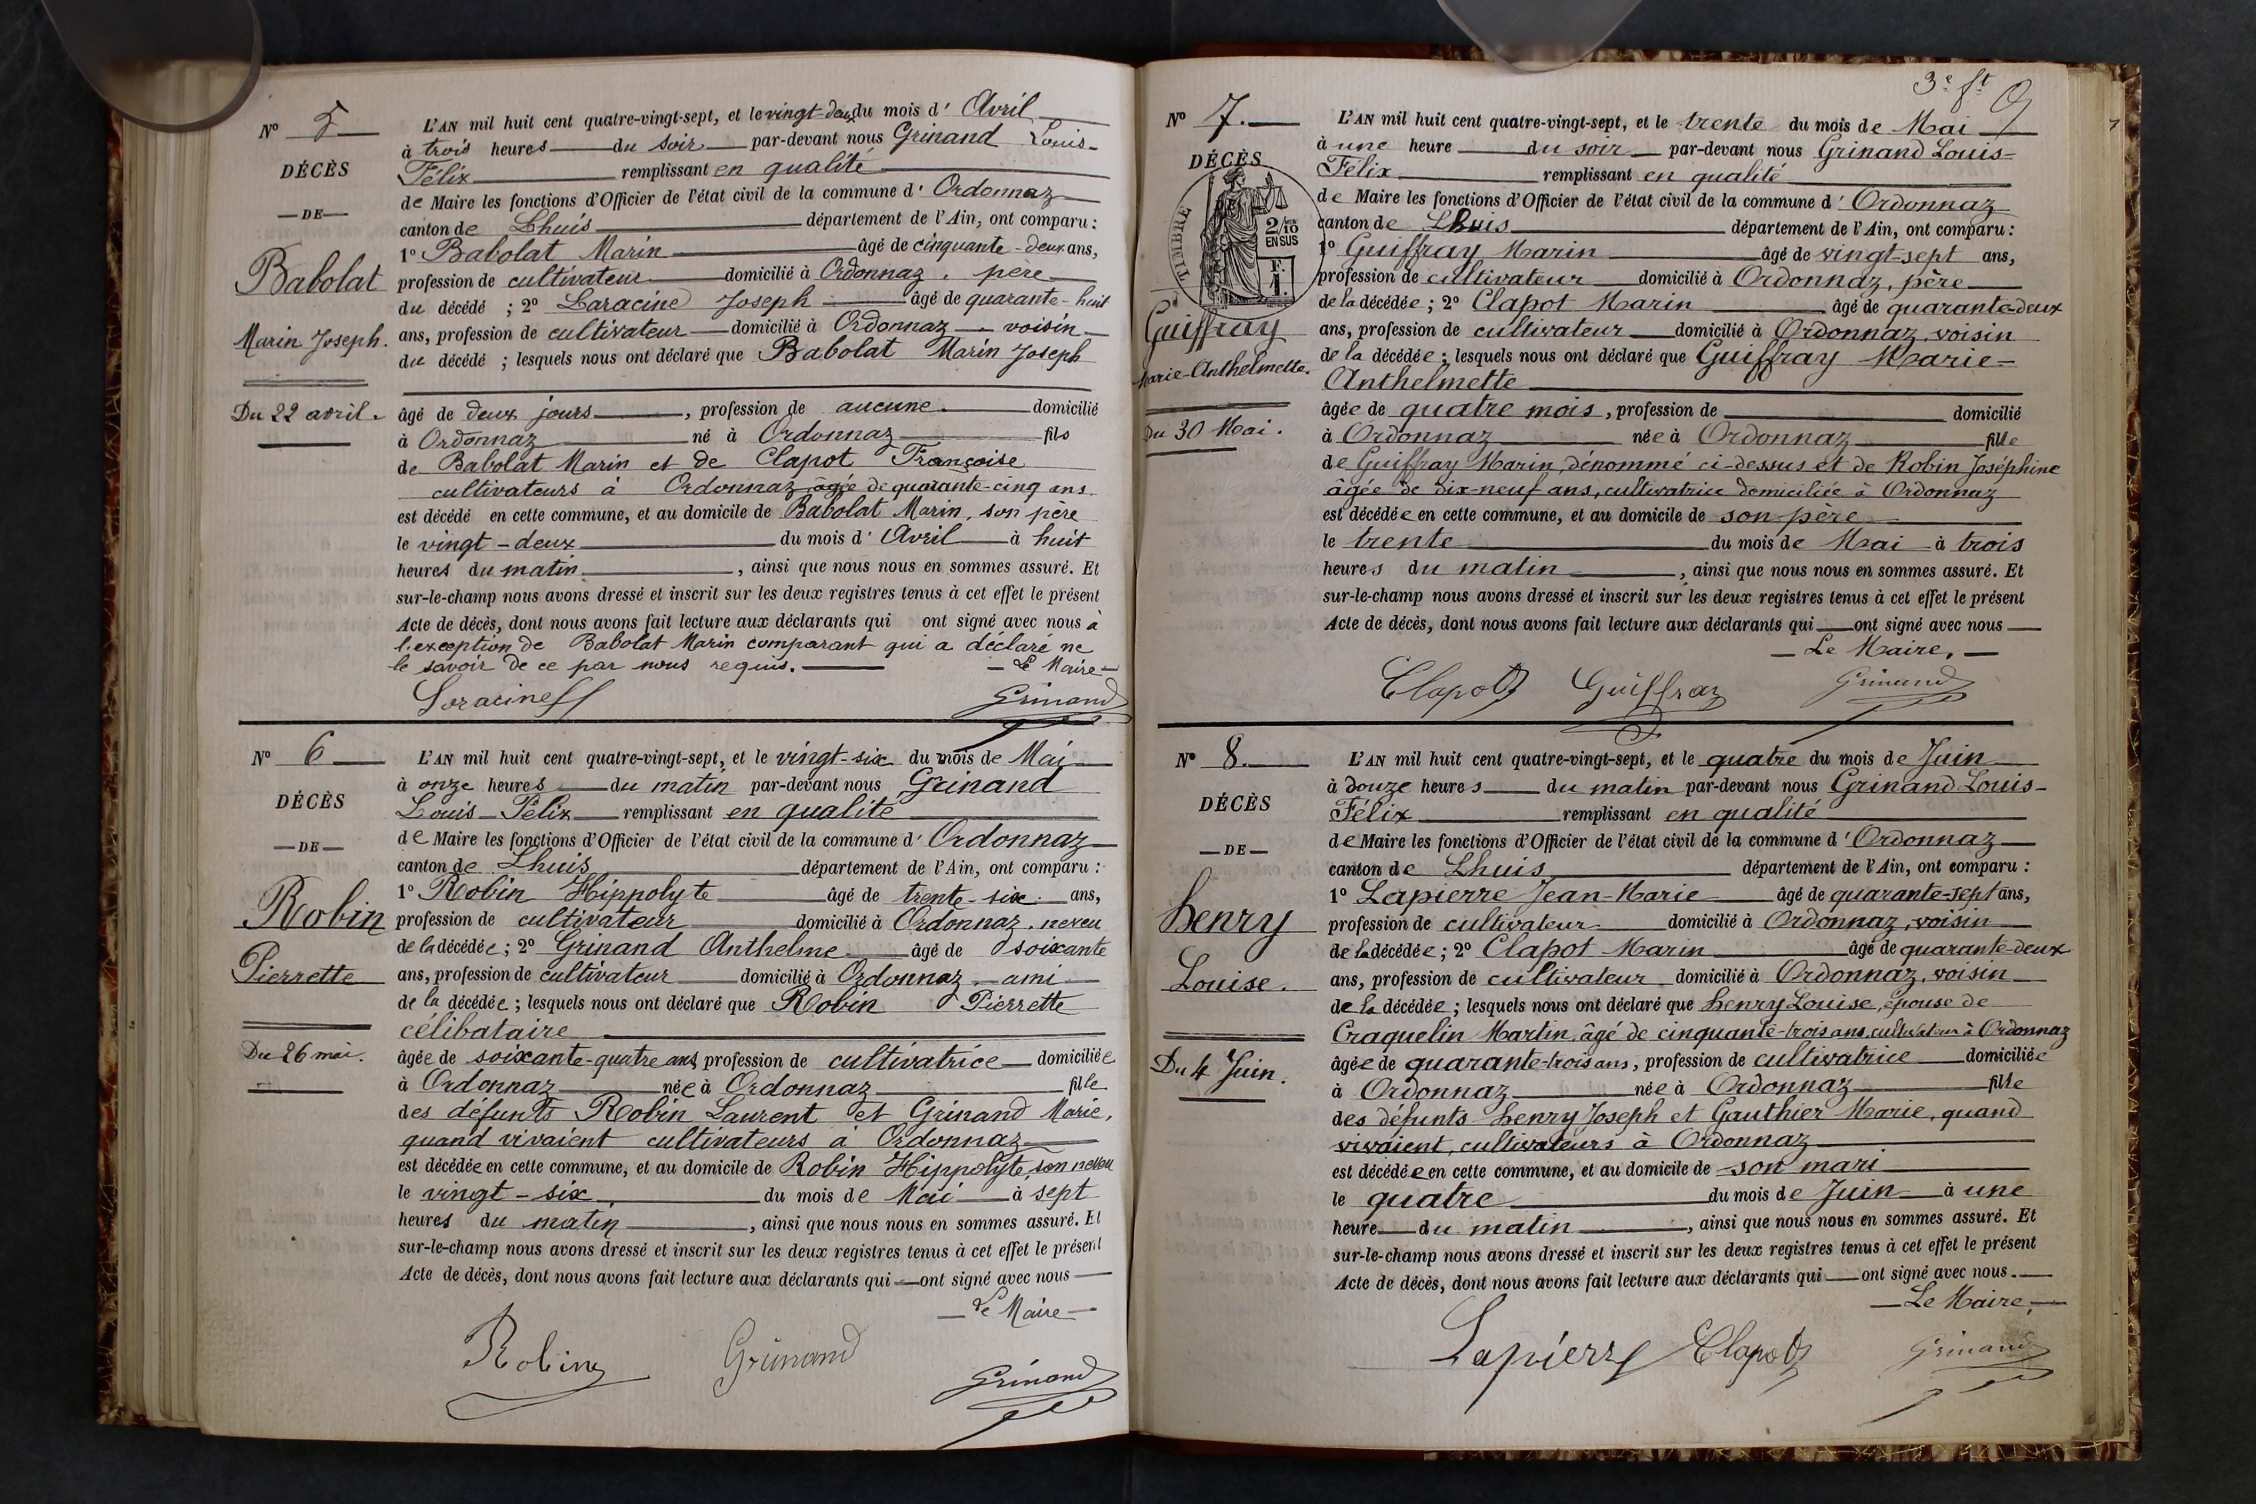 N° 5
DÉCÈS
—DE—
Babolat
Marin Joseph.
Du 22 avril.
L'AN mil huit cent quatre-vingt-sept, et le vingt-deux du mois d' Avril
à trois heures du soir par-devant nous Grinand Louis-
Félix remplissant en qualité
de Maire les fonctions d'Officier de l'état civil de la commune d' Ordonnaz
canton de Lhuis département de l'Ain, ont comparu :
1° Babolat Marin âgé de cinquante-deux ans,
profession de cultivateur domicilié à Ordonnaz, père
du décédé ; 2° Laracine Joseph âgé de quarante-huit
ans, profession de cultivateur domicilié à Ordonnaz voisin
du décédé ; lesquels nous ont déclaré que Babolat Marin Joseph
âgé de deux jours, profession de aucune domicilié
à Ordonnaz né à Ordonnaz fils
de Babolat Marin et de Clapot Françoise
cultivateurs à Ordonnaz, âgée de quarante-cinq ans
est décédé en cette commune, et au domicile de Babolat Marin, son père
le vingt-deux du mois d' Avril à huit
heures du matin, ainsi que nous nous en sommes assuré. Et
sur-le-champ nous avons dressé et inscrit sur les deux registres tenus à cet effet le présent
Acte de décès, dont nous avons fait lecture aux déclarants qui ont signé avec nous à
l'exception de Babolat Marin comparant qui a déclaré ne
le savoir de ce par nous requis. — Le Maire —
Laracine Grinand
N° 6
DÉCÈS
—DE—
Robin
Pierrette
Du 26 mai.
L'AN mil huit cent quatre-vingt-sept, et le vingt-six du mois de Mai
à onze heures du matin par-devant nous Grinand
Louis-Félix remplissant en qualité
de Maire les fonctions d'Officier de l'état civil de la commune d' Ordonnaz
canton de Lhuis département de l'Ain, ont comparu :
1° Robin Hippolyte âgé de trente-six ans,
profession de cultivateur domicilié à Ordonnaz, neveu
de la décédée ; 2° Grinand Anthelme âgé de soixante
ans, profession de cultivateur domicilié à Ordonnaz ami
de la décédée ; lesquels nous ont déclaré que Robin Pierrette
célibataire
âgée de soixante-quatre ans, profession de cultivatrice domiciliée
à Ordonnaz née à Ordonnaz fille
des défunts Robin Laurent et Grinand Marie,
quand vivaient cultivateurs à Ordonnaz
est décédée en cette commune, et au domicile de Robin Hippolyte, son neveu
le vingt-six du mois de Mai à sept
heures du matin, ainsi que nous nous en sommes assuré. Et
sur-le-champ nous avons dressé et inscrit sur les deux registres tenus à cet effet le présent
Acte de décès, dont nous avons fait lecture aux déclarants qui ont signé avec nous
— Le Maire —
Robin Grinand Grinand
3e ft 9
N° 7.
DÉCÈS
TIMBRE
2/10
EN SUS
F.
1.
Guiffray
Marie-Anthelmette.
Du 30 Mai.
L'AN mil huit cent quatre-vingt-sept, et le trente du mois de Mai
à une heure du soir par-devant nous Grinand Louis-
Félix remplissant en qualité
de Maire les fonctions d'Officier de l'état civil de la commune d' Ordonnaz
canton de Lhuis département de l'Ain, ont comparu :
1° Guiffray Marin âgé de vingt-sept ans,
profession de cultivateur domicilié à Ordonnaz, père
de la décédée ; 2° Clapot Marin âgé de quarante-deux
ans, profession de cultivateur domicilié à Ordonnaz, voisin
de la décédée ; lesquels nous ont déclaré que Guiffray Marie-
Anthelmette
âgée de quatre mois, profession de domicilié
à Ordonnaz née à Ordonnaz fille
de Guiffray Marin, dénommé ci-dessus et de Robin Joséphine
âgée de dix-neuf ans, cultivatrice domiciliée à Ordonnaz
est décédée en cette commune, et au domicile de son père
le trente du mois de Mai à trois
heures du matin, ainsi que nous nous en sommes assuré. Et
sur-le-champ nous avons dressé et inscrit sur les deux registres tenus à cet effet le présent
Acte de décès, dont nous avons fait lecture aux déclarants qui ont signé avec nous
— Le Maire. —
Clapot Guiffray Grinand
N° 8.
DÉCÈS
—DE—
Henry
Louise.
Du 4 Juin.
L'AN mil huit cent quatre-vingt-sept, et le quatre du mois de Juin
à douze heures du matin par-devant nous Grinand Louis-
Félix remplissant en qualité
de Maire les fonctions d'Officier de l'état civil de la commune d' Ordonnaz
canton de Lhuis département de l'Ain, ont comparu :
1° Lapierre Jean-Marie âgé de quarante-sept ans,
profession de cultivateur domicilié à Ordonnaz, voisin
de la décédée ; 2° Clapot Marin âgé de quarante-deux
ans, profession de cultivateur domicilié à Ordonnaz, voisin
de la décédée ; lesquels nous ont déclaré que Henry Louise, épouse de
Craquelin Martin, âgé de cinquante-trois ans, cultivateur à Ordonnaz
âgée de quarante-trois ans, profession de cultivatrice domiciliée
à Ordonnaz née à Ordonnaz fille
des défunts Henry Joseph et Gauthier Marie, quand
vivaient, cultivateurs à Ordonnaz
est décédée en cette commune, et au domicile de son mari
le quatre du mois de Juin à une
heure du matin, ainsi que nous nous en sommes assuré. Et
sur-le-champ nous avons dressé et inscrit sur les deux registres tenus à cet effet le présent
Acte de décès, dont nous avons fait lecture aux déclarants qui ont signé avec nous.
— Le Maire, —
Lapierre Clapot Grinand